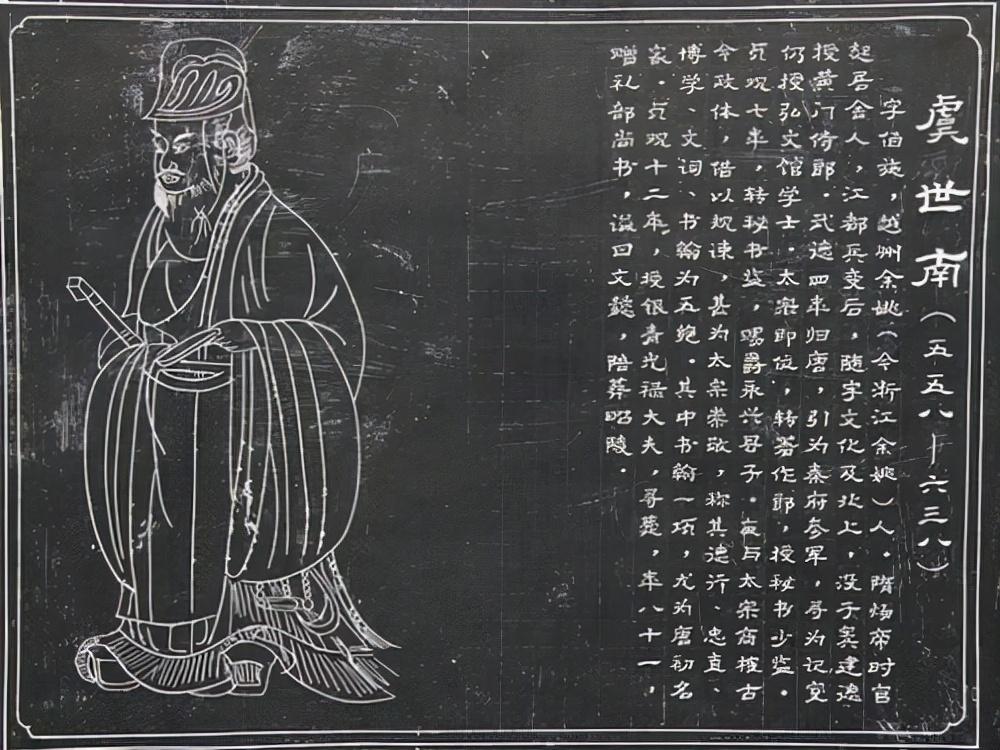 虞世南(五五八—六三八)
字伯施,越州余姚(今浙江余姚)人。隋炀帝时官
起居舍人,江都兵变后,随宇文化及北上,没于窦建德
授黄门侍郎。武德四年归唐,引为秦府参军,寻为记室
仍授弘文馆学士。太宗即位,转著作郎,授秘书少监。
贞观七年,转秘书监,赐爵永兴县子。每与太宗商榷古
今政体,借以规谏,甚为太宗崇敬,称其德行、忠直、
博学、文词、书翰为五绝。其中书翰一项,尤为唐初名
家。贞观十二年,授银青光禄大夫,寻薨,年八十一,
赠礼部尚书,谥曰文懿,陪葬昭陵。